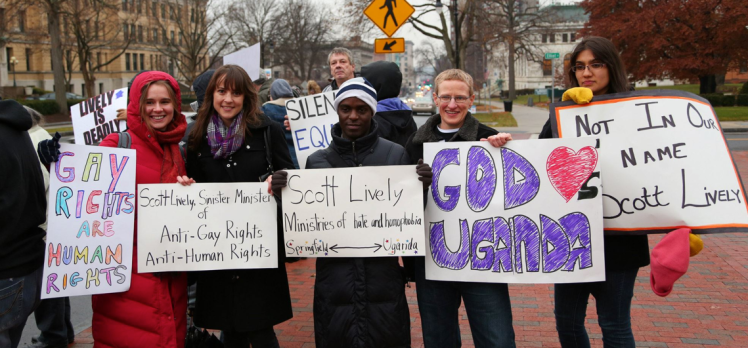 LIVELY IS
DEADLY
GAY
RIGHTS
ARE
HUMAN
RIGHTS
Scott Lively, Sinister Minister
of
Anti-Gay Rights
Anti-Human Rights
SILEN
EQU
Scott Lively
Ministries of hate and homophobia
Springfield Uganda
GOD
UGANDA
Not In Our
Name
Scott Lively